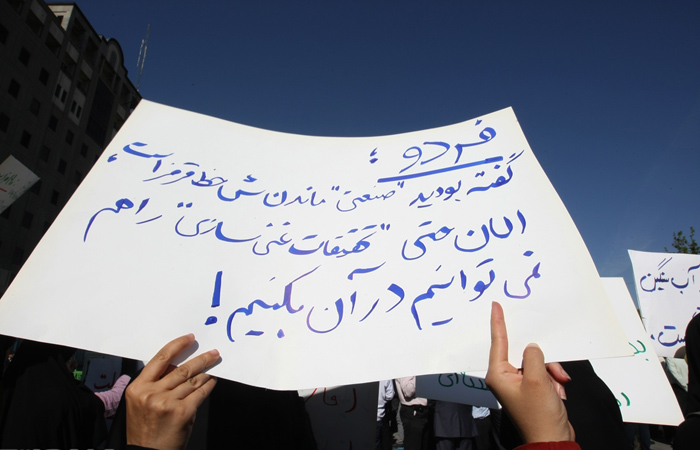 فردو :
گفته بودید "صنعتی" ماندنش خط قرمز است،
الان حتی "تحقیقات غنی سازی" را هم
نمی توانیم در آن بکنیم!
آب سنگین